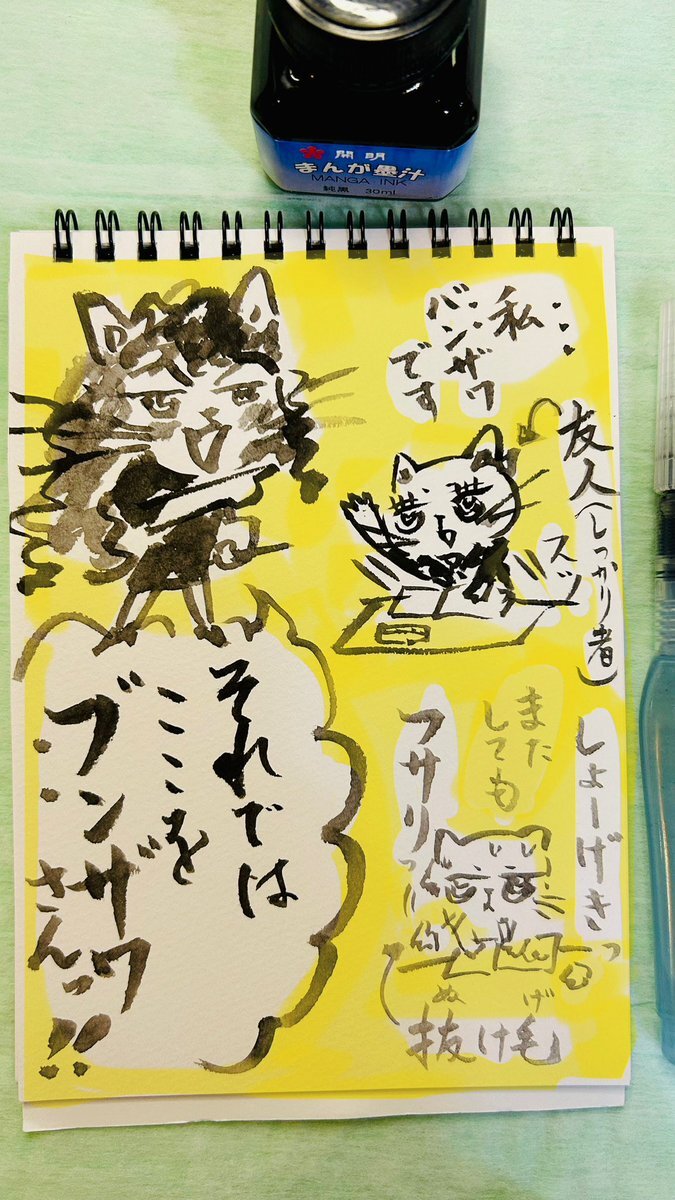 開明
まんが墨汁
MANGA INK
純黒 30ml
私…
バンザワ
です
友人(しっかり者)
スッ
それでは
ここを
ブンザワ
さんっ!!
しょーげきっ
また
しても
フサリッ
ぬ げ
抜け毛